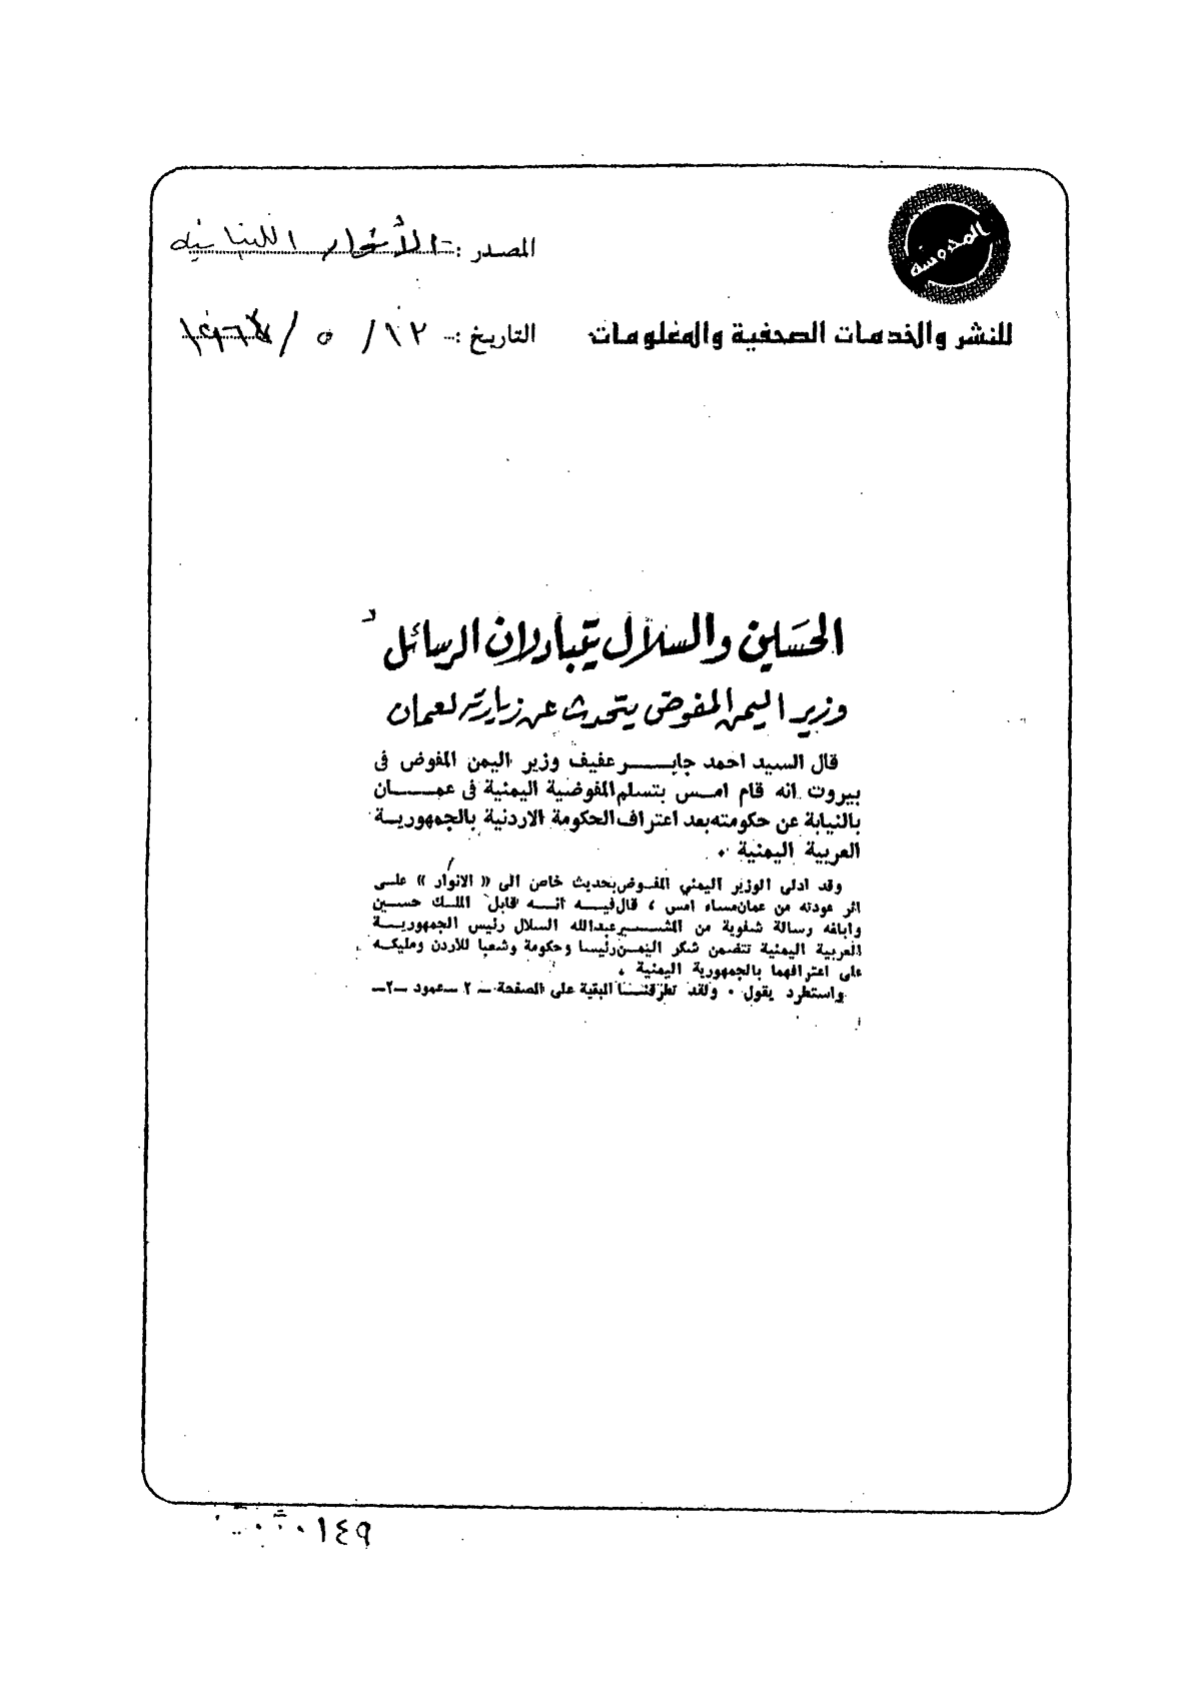 المحروسة
المصدر : الأنوار اللبنانية
للنشر والخدمات الصحفية والمعلومات
التاريخ : ١٢ / ٥ /
الحسين والسلال يتبادلان الرسائل
وزير اليمن المفوض يتحدث عن زيارته لعمان
قال السيد احمد جابر عفيف وزير اليمن المفوض في
بيروت انه قام امس بتسلم المفوضية اليمنية في عمان
بالنيابة عن حكومته بعد اعتراف الحكومة الاردنية بالجمهورية
العربية اليمنية .
وقد ادلى الوزير اليمني المفوض بحديث خاص الى « الانوار » على
اثر عودته من عمان مساء امس ، قال فيه انه قابل الملك حسين
وابلغه رسالة شفوية من المشير عبدالله السلال رئيس الجمهورية
العربية اليمنية تتضمن شكر اليمن رئيسا وحكومة وشعبا للأردن ومليكه
على اعترافهما بالجمهورية اليمنية .
واستطرد يقول . ولقد تطرقنا البقية على الصفحة – ٢ – عمود – ٢ –
٠١٤٩